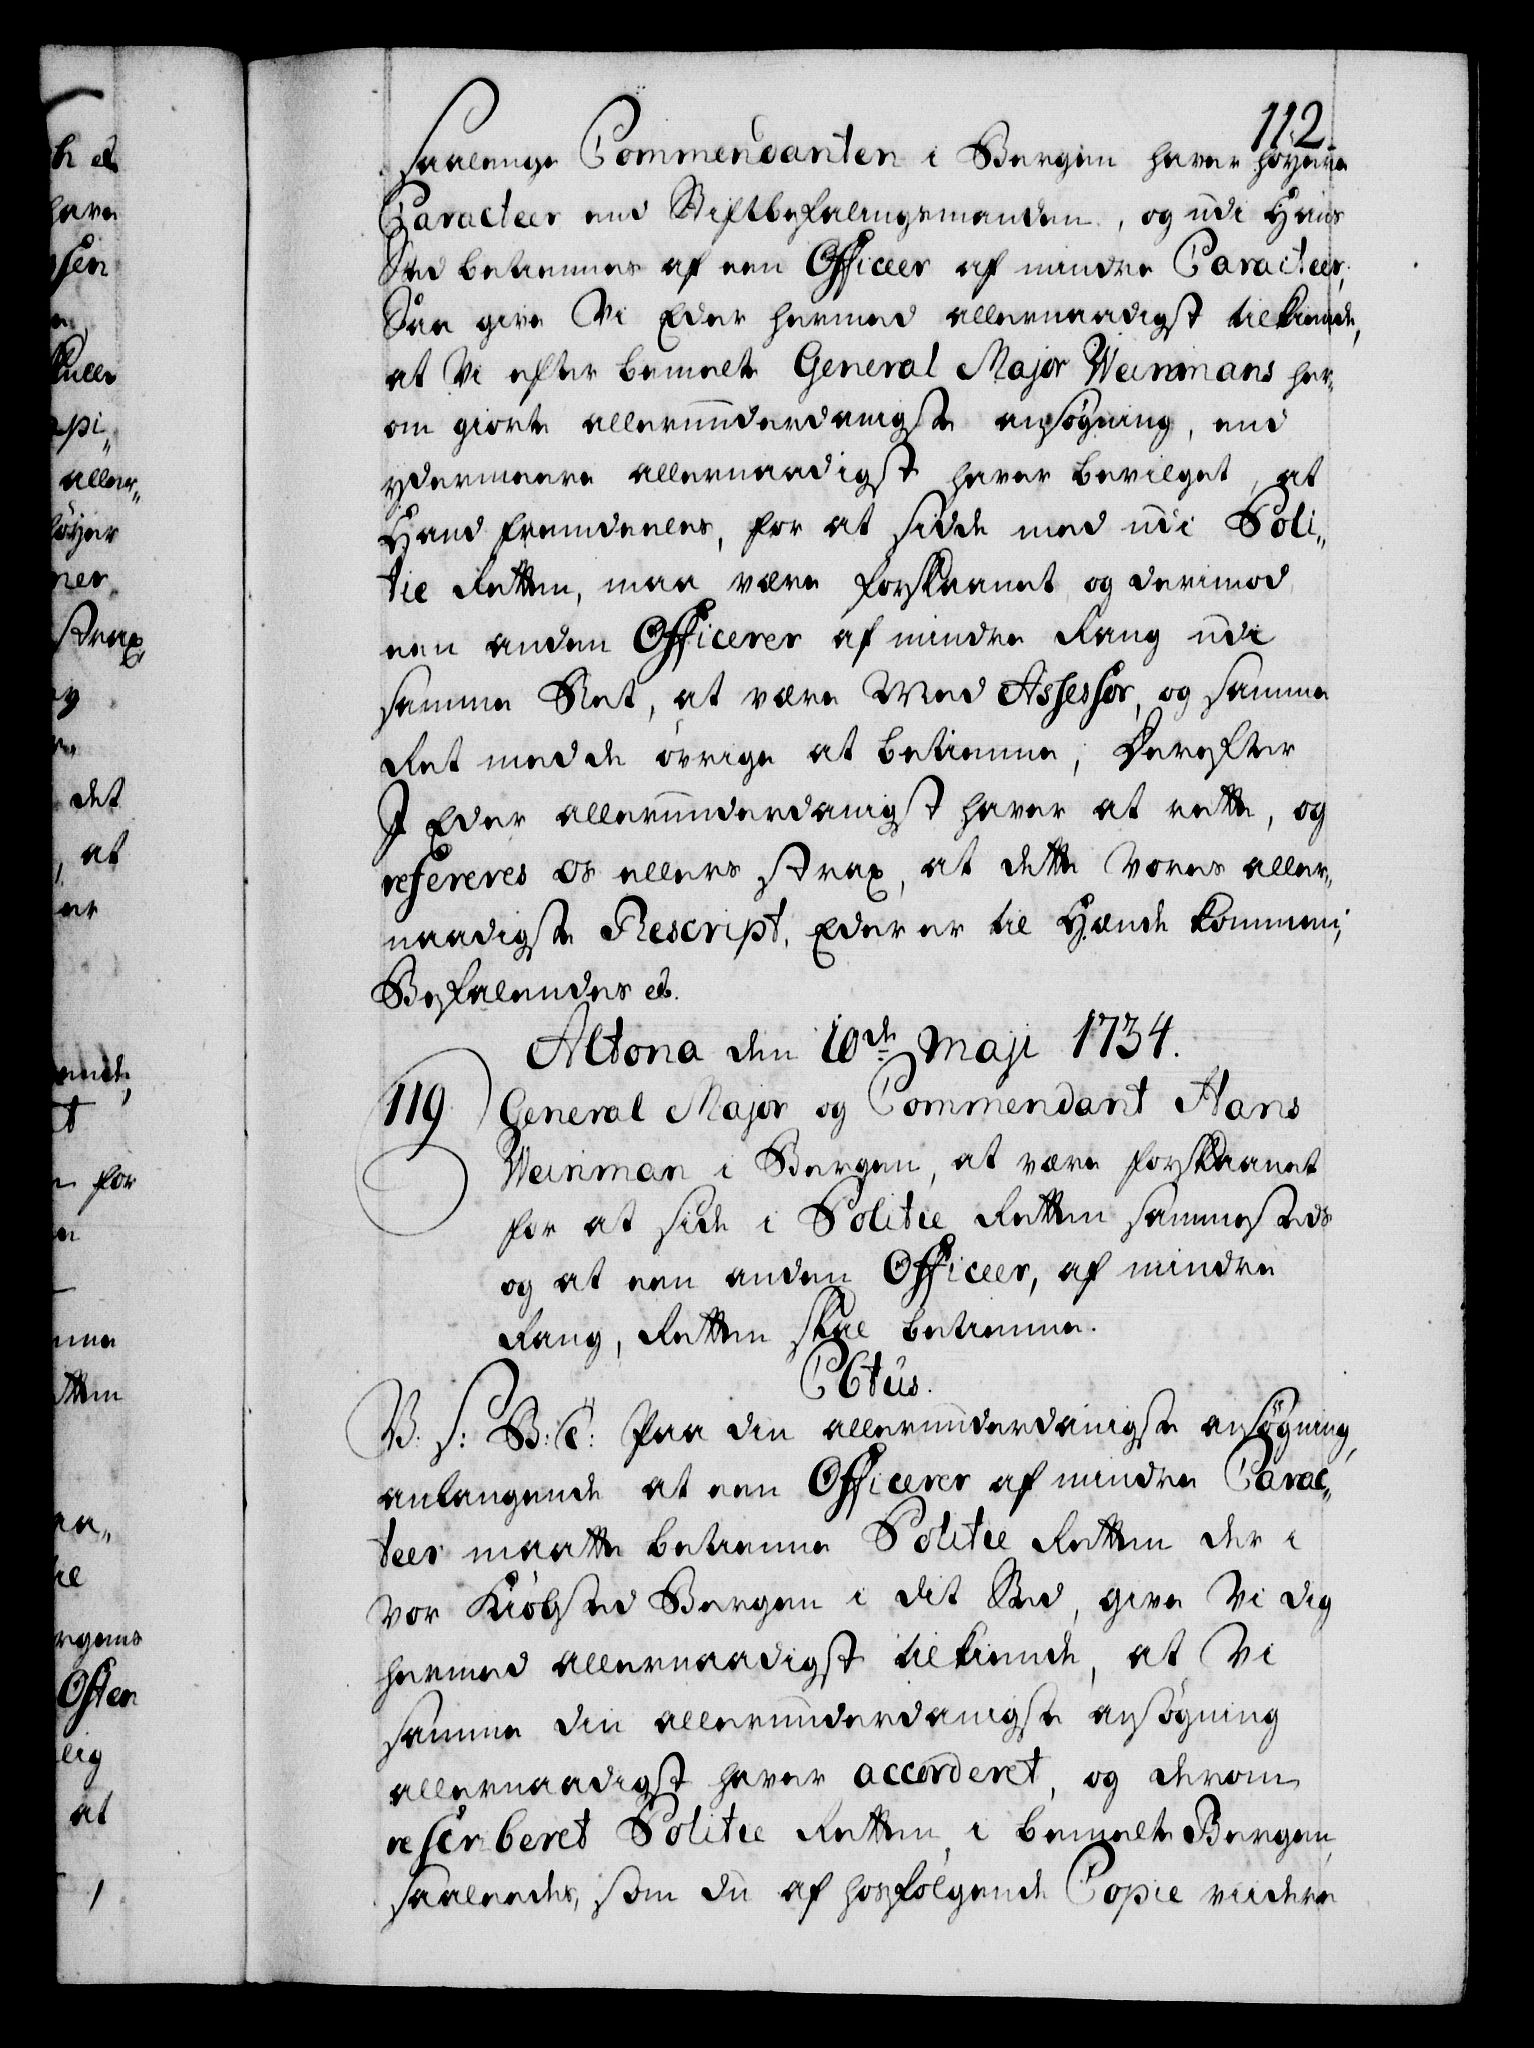 112
saalenge Commendanten i Bergen haver høyere
Caracteer end Stiftbefalingsmanden, og udi Hans
Sted betiennes af een Officeer af mindre Caracteer,
Saa give Vi Eder hermed allernaadigst tilkiende,
at Vi efter bemelte General Major Weinmans her„
om giorte allerunderdanigste ansøgning, end
ydermeere allernaadigst haver bevilget, at
Hand fremdeeles, for at sidde med udi Poli„
tie Retten, maa være forskaanet og derimod
een anden Officerer af mindre Rang udi
samme Ret, at være Med Assessor, og samme
Ret med de øvrige at betienne; Derefter
I Eder allerunderdanigst haver at rette, og
refereres os ellers strax, at dette Vores aller„
naadigste Rescript, Eder er til Hænde kommen;
Befalendes etc.
Altona den 10de Maji 1734.
119 General Major og Commendant Hans
Weinman i Bergen, at være forskaanet
for at side i Politie Retten sammesteds
og at een anden Officeer, af mindre
Rang, Retten skal betienne.
C6tus.
V. S: B: C: Paa din allerunderdanigste ansøgning,
anlangende at een Officerer af mindre Carac„
teer maatte betienne Politie Retten der i
Vor Kiøbsted Bergen i dit Sted, give Vi dig
hermed allernaadigst tilkiende, at Vi
samme din allerunderdanigste ansøgning
allernaadigst haver accorderet, og derom
rescriberet Politie Retten i bemelte Bergen,
saaleedes, som du af hosfølgende Copie viidere